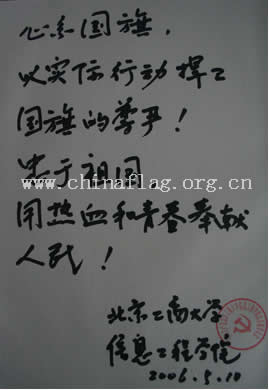 心系国旗，
以实际行动捍卫
国旗的尊严！
忠于祖国
www.chinaflag.org.cn
用热血和青春奉献
人民！
北京工商大学
信息工程学院
2006.5.10